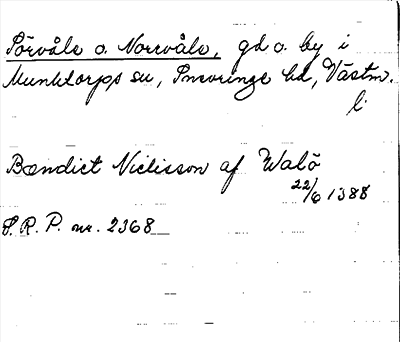 Sörvåle o. Norrvåle, gd o. by i
Munktorps sn, Snevringe hd, Västm.
l:
Bændict Niclisson af Walö
22/6 1388
S.R.P. nr. 2368